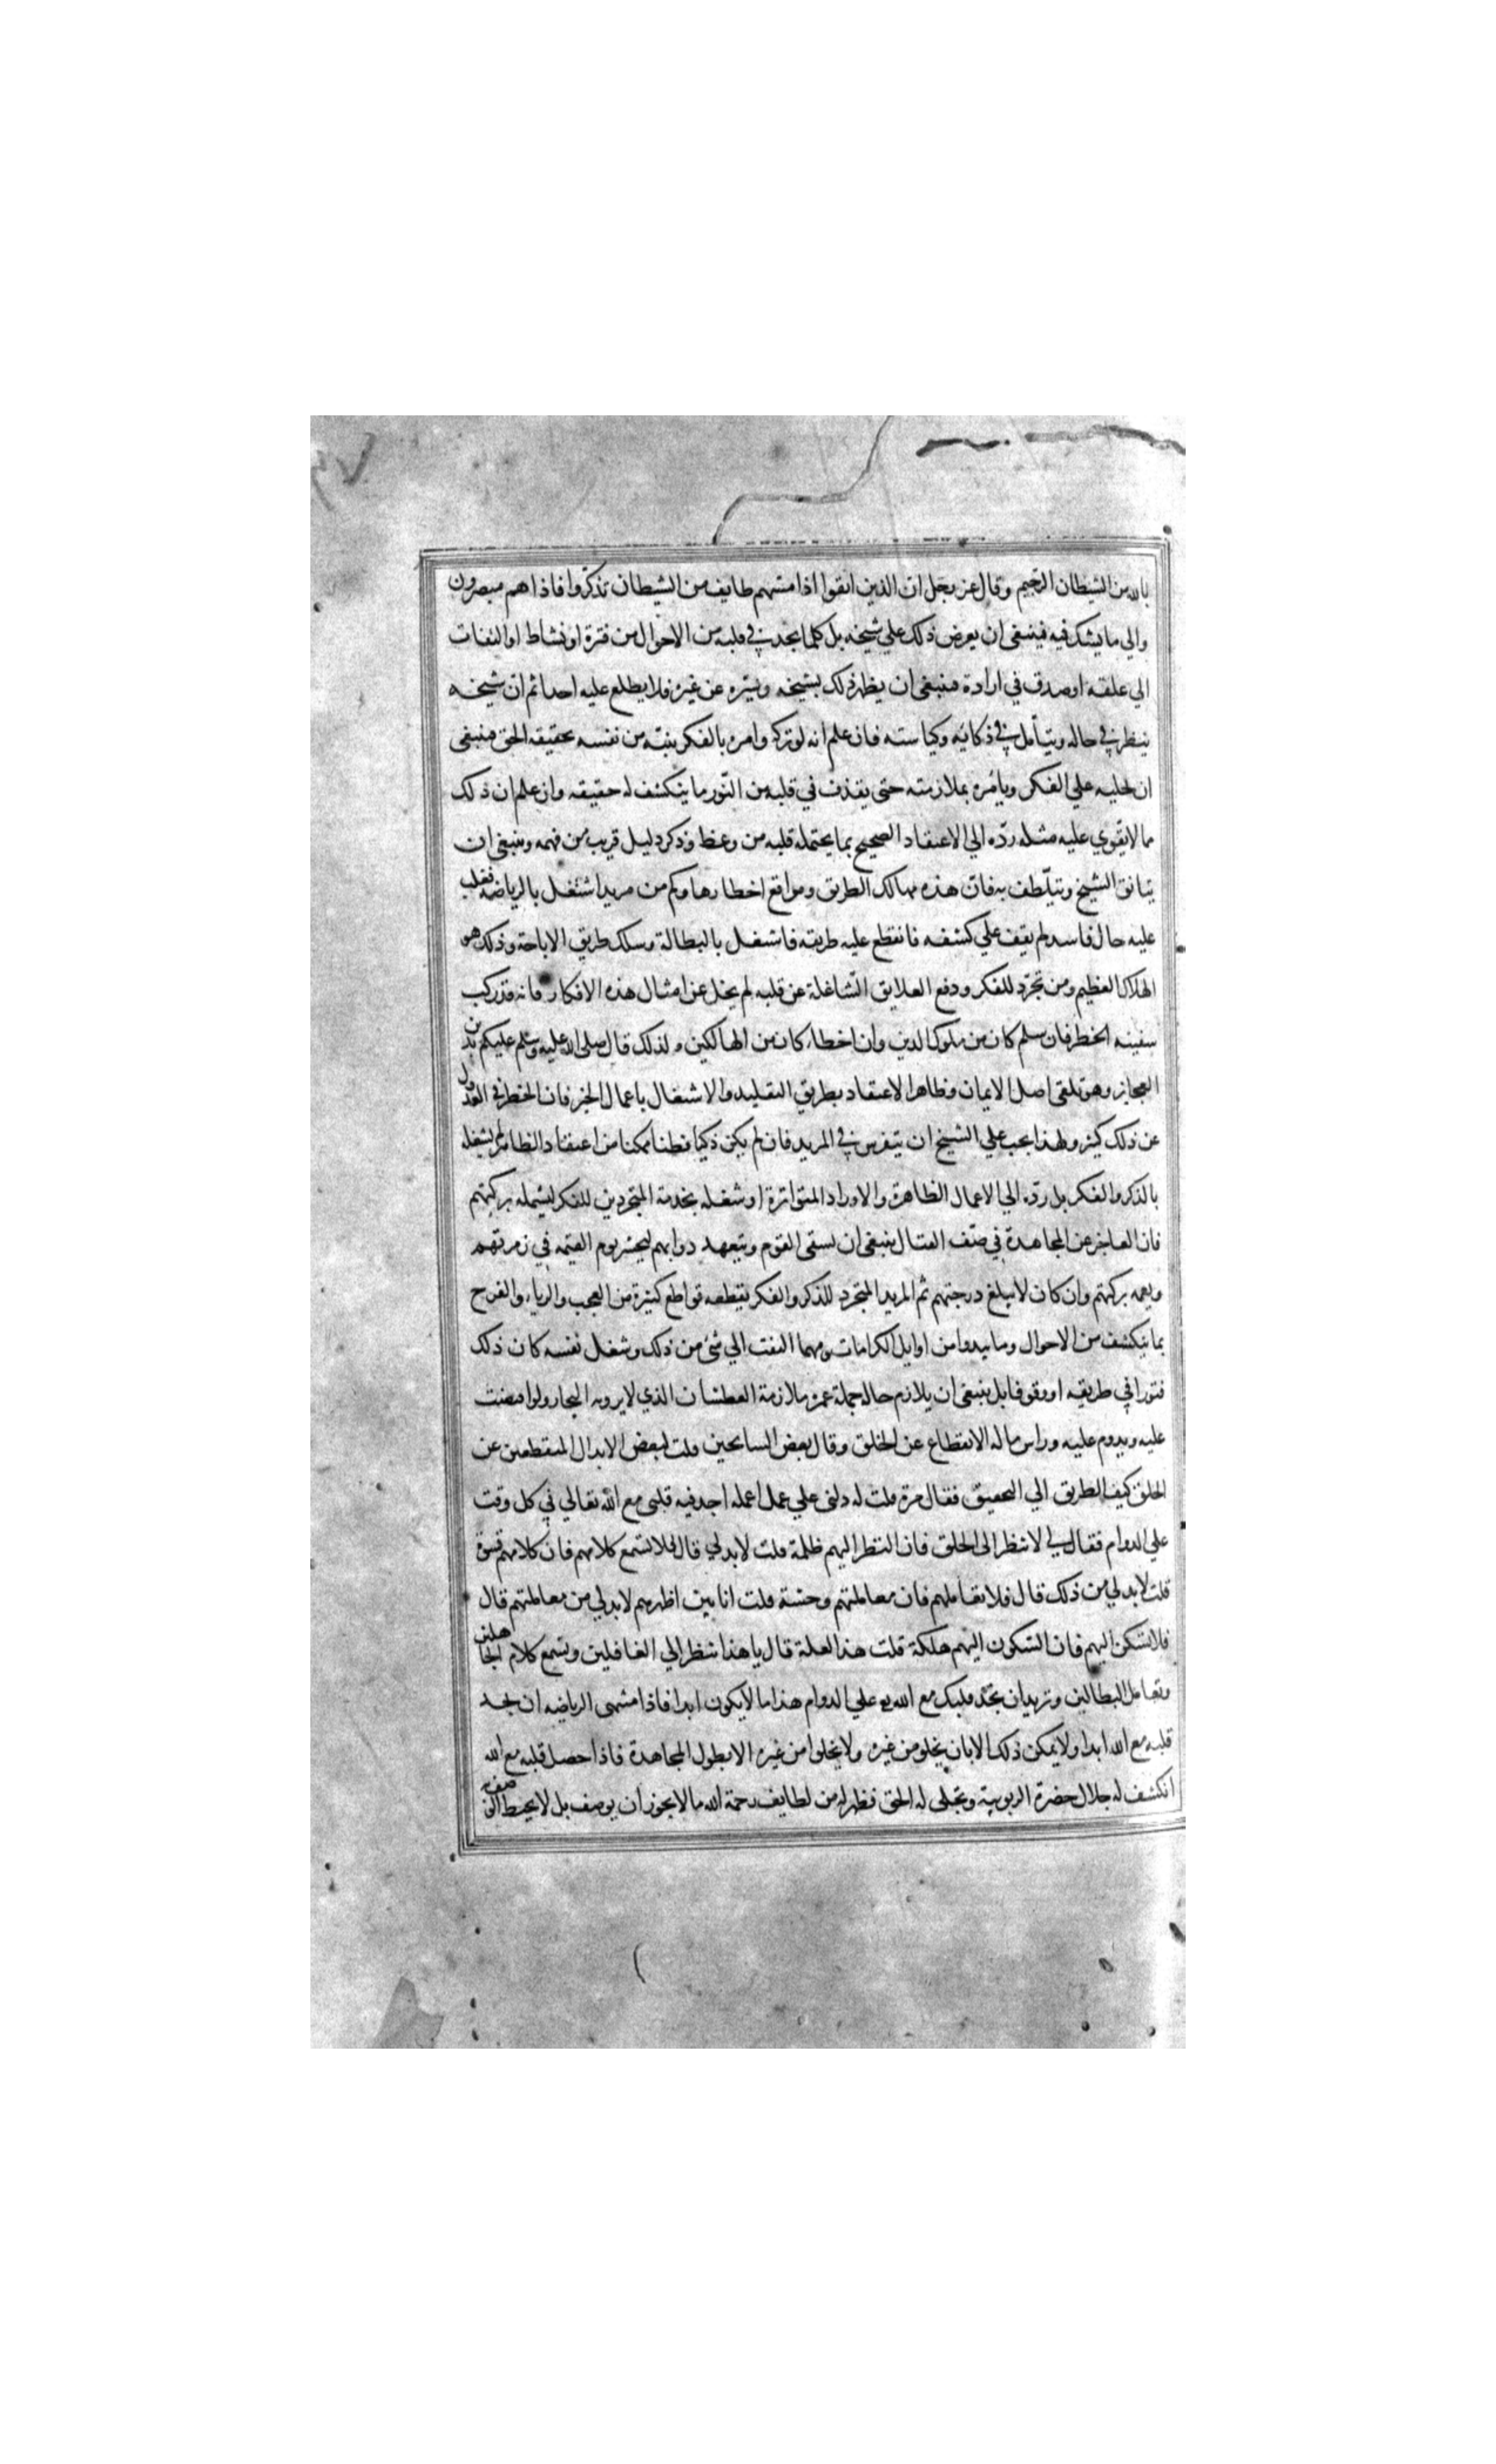 بالله من الشيطان الرجيم وقال عز وجل ان الذين اتقوا اذا مسهم طايف من الشيطان تذكروا فاذا هم مبصرون
والي ما يشك فيه فينبغي ان يعرض ذلك علي شيخه بل كلما يجد في قلبه من الاحوال من فترة او نشاط او التفات
الي علقة او صدق في ارادة فينبغي ان يظهر ذلك لشيخه ويستره عن غيره فلا يطلع عليه احدا ثم ان شيخه
ينظر في حاله ويتأمل في ذكائه وكياسته فان علم انه لو تركه وامره بالفكر ينتبه من نفسه بحقيقة الحق فينبغي
ان يحليه علي الفكر ويأمره بملازمته حتى يقذف في قلبه من النور ما ينكشف له حقيقته وان علم ان ذلك
مما لا يقوي عليه مثله رده الي الاعتقاد الصحيح بما يحتمله قلبه من وعظ وذكر دليل قريب من فهمه وينبغي ان
يتانق الشيخ ويتلطف به فان هذه مهالك الطريق ومواقع اخطارها وكم من مريد اشتغل بالرياضة فغلب
عليه حال فاسد لم يقف علي كشفه فانقطع عليه طريقه فاشتغل بالبطالة وسلك طريق الاباحة وذلك هو
الهلاك العظيم ومن تجرد للفكر ودفع العلايق الشاغلة عن قلبه لم يخل عن امثال هذه الافكار فانه قد ركب
سفينة الخطر فان سلم كان من ملوك الدين وان اخطاء كان من الهالكين ولذلك قال صلى الله عليه وسلم عليكم بدين
العجايز وهو تلقى اصل الايمان وظاهر الاعتقاد بطريق التقليد والاشتغال باعمال الخير فان الخطر في العدول
عن ذلك كثير ولهذا يجب علي الشيخ ان يتفرس في المريد فان لم يكن ذكيا فطنا متمكنا من اعتقاد الظاهر لم يشغله
بالذكر والفكر بل رده الي الاعمال الظاهرة والاوراد المتواترة او شغله بخدمة المتجردين للفكر ليشمله بركتهم
فان العاجز عن المجاهدة في صف القتال ينبغي ان يسقى القوم ويتعهد دوابهم ليحشر يوم القيمة في زمرتهم
ويعمه بركتهم وان كان لا يبلغ درجتهم ثم المريد المتجرد للذكر والفكر يقطعه قواطع كثيرة من العجب والرياء والفرح
بما ينكشف من الاحوال وما يبدوا من اوايل الكرامات ومهما التفت الي شئ من ذلك وشغل نفسه كان ذلك
فتورا في طريقه او وقوفا بل ينبغي ان يلازم حاله جملة عمره ملازمة العطشان الذي لا يرويه البحار ولو افيضت
عليه ويدوم عليه وراس ماله الانقطاع عن الخلق وقال بعض السايحين قلت لبعض الابدال المنقطعين عن
الخلق كيف الطريق الي التحقيق فقال مرة قلت له دلني علي عمل اعمله اجد فيه قلبي مع الله تعالي في كل وقت
علي الدوام فقال لي لا تنظر الى الخلق فان النظر اليهم ظلمة قلت لا بد لي قال فلا تسمع كلامهم فان كلامهم قسوة
قلت لا بد لي من ذلك قال فلا تعاملهم فان معاملتهم وحشة قلت انا بين اظهرهم لا بد لي من معاملتهم قال
فلا تسكن اليهم فان السكون اليهم هلكة قلت هذا لعلة قال يا هذا تنظر الي الغافلين وتسمع كلام الجاهلين
وتعامل البطالين وتريد ان تجد قلبك مع الله علي الدوام هذا ما لا يكون ابدا فاذا منتهى الرياضة ان يجد
قلبه مع الله ابدا ولا يمكن ذلك الا بان يخلو من غيره ولا يخلوا من غيره الا بطول المجاهدة فاذا حصل قلبه مع الله
انكشف له جلال حضرة الربوبية وتجلى له الحق فظهر له من لطايف رحمة الله ما لا يجوز ان يوصف بل لا يحيط الوصف